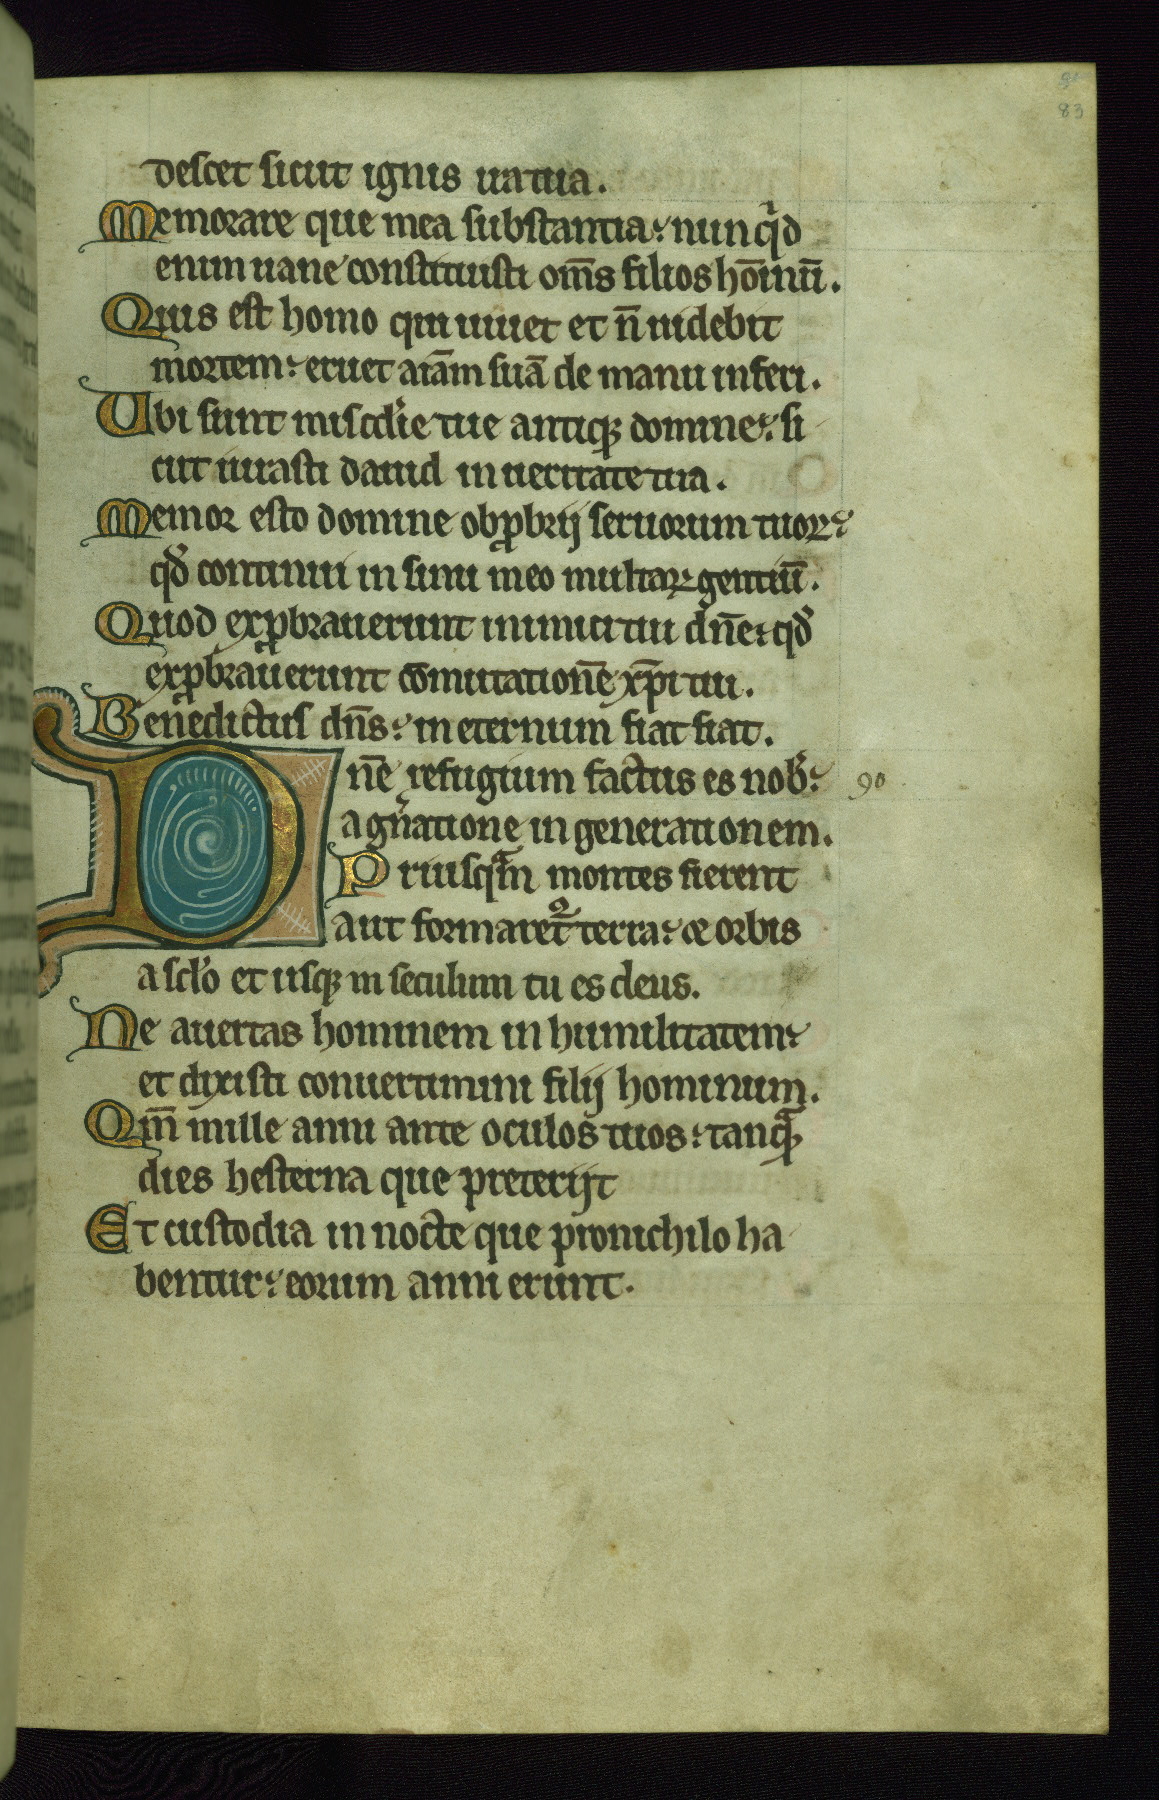 91
83
descet sicut ignis ira tua.
Memorare que mea substantia: nunqͥd
enim uane constituisti om̅s filios ho̅inu̅.
Quis est homo qui uiuet et n̅ uidebit
mortem: eruet aia̅m sua̅ de manu inferi.
Ubi sunt miscd̓ie tue antiqꝫ domine: si
cut iurasti dauid in ueritate tua.
Memor esto domine obꝓbrij seruorum tuoꝝ:
qd̓ continui in sinu meo multaꝝ gentiu̅.
Quod exꝓbrauerunt inimici tui dn̅e: qd̓
exꝓbrauerunt co̅mutatione̅ xp̅i tui.
Benedictus dn̅s: in eternum fiat fiat.
Dn̅e refugium factus es nob̓: 90
a gn̓atione in generationem.
Priusqͣm montes fierent
aut formaret᷑ terra: et orbis
a scl̓o et usqꝫ in seculum tu es deus.
Ne auertas hominem in humilitatem:
et dixisti conuertimini filij hominum.
Qm̅ mille anni ante oculos tuos: tanqͣꝫ
dies hesterna que preterijt
Et custodia in nocte que pro nichilo ha
bentur: eorum anni erunt.